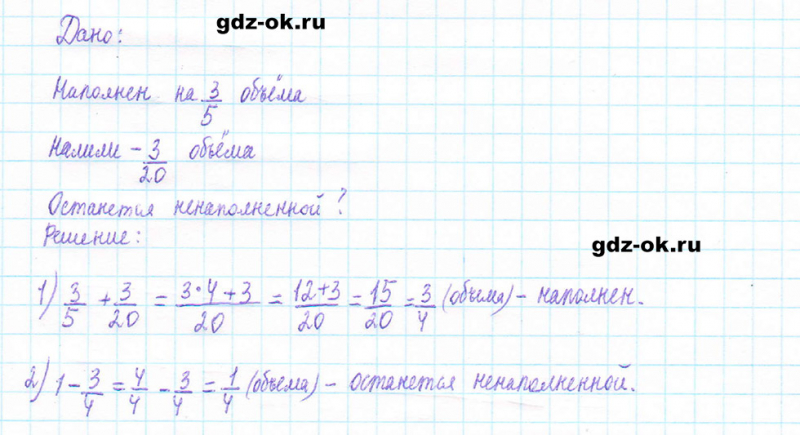 gdz-ok.ru
Дано:
Наполнен на 3/5 объёма
Налили - 3/20 объёма
Останется ненаполненной?
Решение:
gdz-ok.ru
1) 3/5 + 3/20 = (3·4+3)/20 = (12+3)/20 = 15/20 = 3/4 (объема) - наполнен.
2) 1 - 3/4 = 4/4 - 3/4 = 1/4 (объема) - останется ненаполненной.